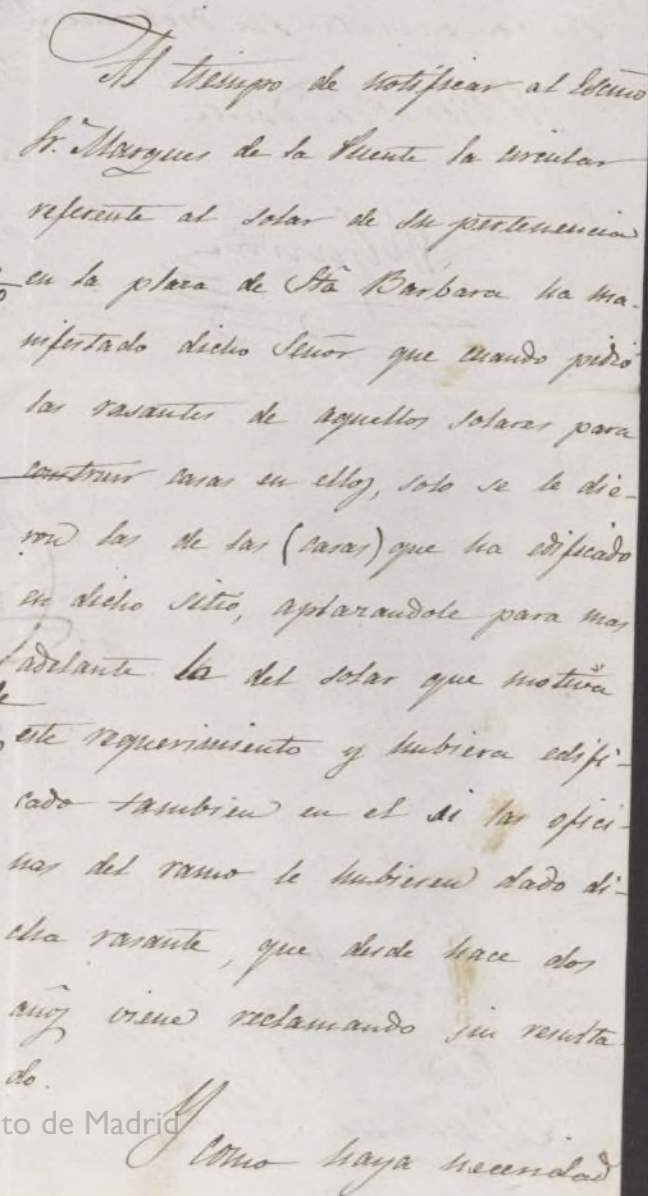 Al tiempo de notificar al Escmo
Sr. Marques de la Puente la circular
referente al solar de su pertenencia
en la plaza de Sta Barbara ha ma-
nifestado dicho Señor que cuando pidió
las rasantes de aquellos solares para
construir casas en ellos, solo se le die-
ron las de las (casas) que ha edificado
en dicho sitio, aplazandole para mas
adelante la del solar que motiva
este requerimiento y hubiera edifi-
cado tambien en el si las ofici-
nas del ramo le hubiesen dado di-
cha rasante, que desde hace dos
años viene reclamando sin resulta-
do.
to de Madrid
Y como haya necesidad